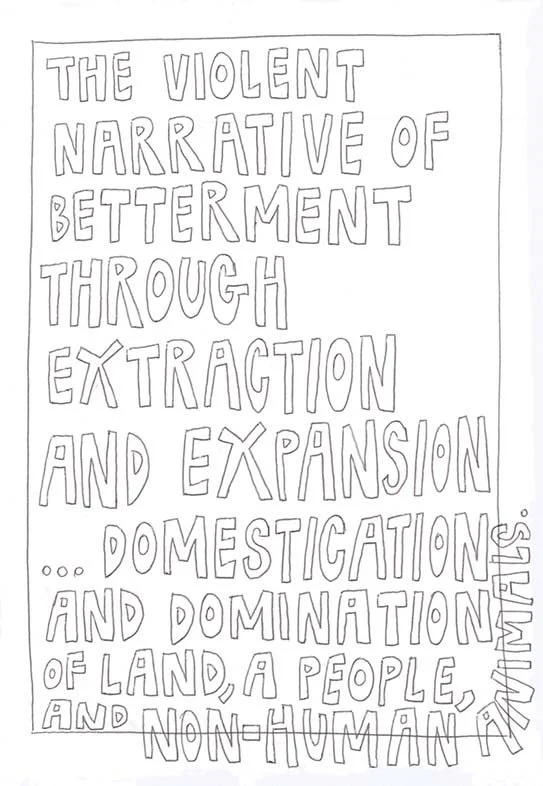 THE VIOLENT
NARRATIVE OF
BETTERMENT
THROUGH
EXTRACTION
AND EXPANSION
... DOMESTICATION
AND DOMINATION
OF LAND, A PEOPLE,
AND NON-HUMAN ANIMALS.